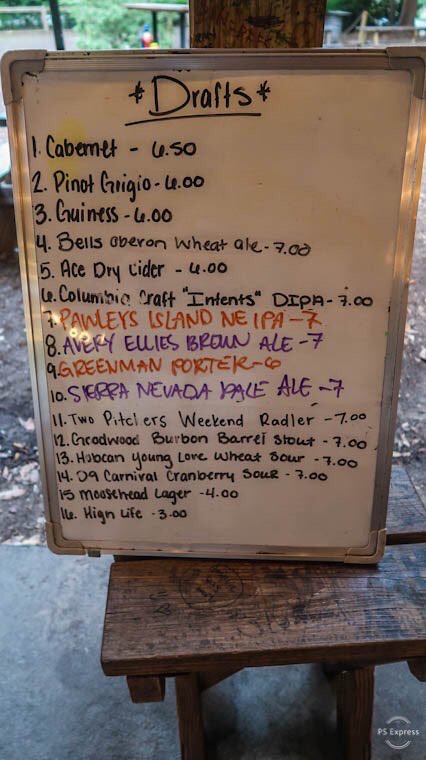 *Drafts*
1. Cabernet - 6.50
2. Pinot Grigio - 6.00
3. Guiness - 6.00
4. Bells oberon Wheat ale - 7.00
5. Ace Dry Cider - 6.00
6. Columbia Craft "Intents" DIPA - 7.00
7. PAWLEYS ISLAND NE IPA - 7
8. AVERY ELLIES BROWN ALE - 7
9. GREENMAN PORTER - 6
10. SIERRA NEVADA PALE ALE - 7
11. Two Pitchers Weekend Radler - 7.00
12. Goodwood Burbon Barrel Stout - 7.00
13. Hoboan Young Love Wheat Sour - 7.00
14. D9 Carnival Cranberry Sour - 7.00
15 Moosehead Lager - 4.00
16. High Life - 3.00
PS Express